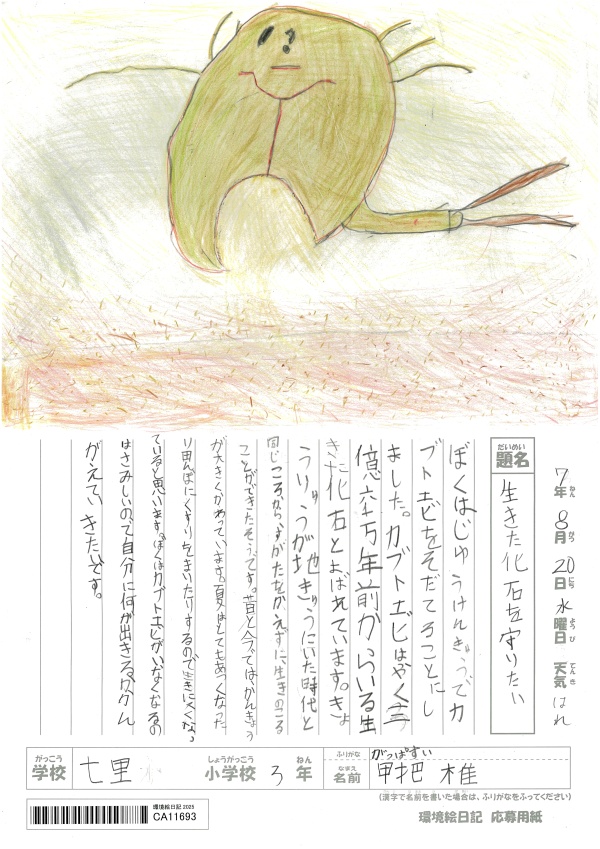 7年 8月 20日 水曜日 天気 はれ
ねん がつ にち ようび てんき
だいめい
題名 生きた化石を守りたい
ぼくはじゆうけんきゅうでカ
ブトエビをそだてることにし
ました。カブトエビはやく二
億六千万年前からいる生
きた化石とよばれています。きょ
うりゅうが地きゅうにいた時代と
同じころから、すがたをかえずに、生きのこる
ことができたそうです。昔と今ではかんきょう
が大きくかわっています。夏はとてもあつくなった
り田んぼにくすりをまいたりするので生きにくくなっ
ていると思います。ぼくはカブトエビがいなくなるの
はさみしいので自分に何が出きるかかん
がえていきたいです。
がっこう しょうがっこう ねん ふりがな がっぱすい
学校 七里 小学校 3年 なまえ 名前 甲把 椎
(漢字で名前を書いた場合は、ふりがなをふってください)
環境絵日記 2025
CA11693
環境絵日記 応募用紙